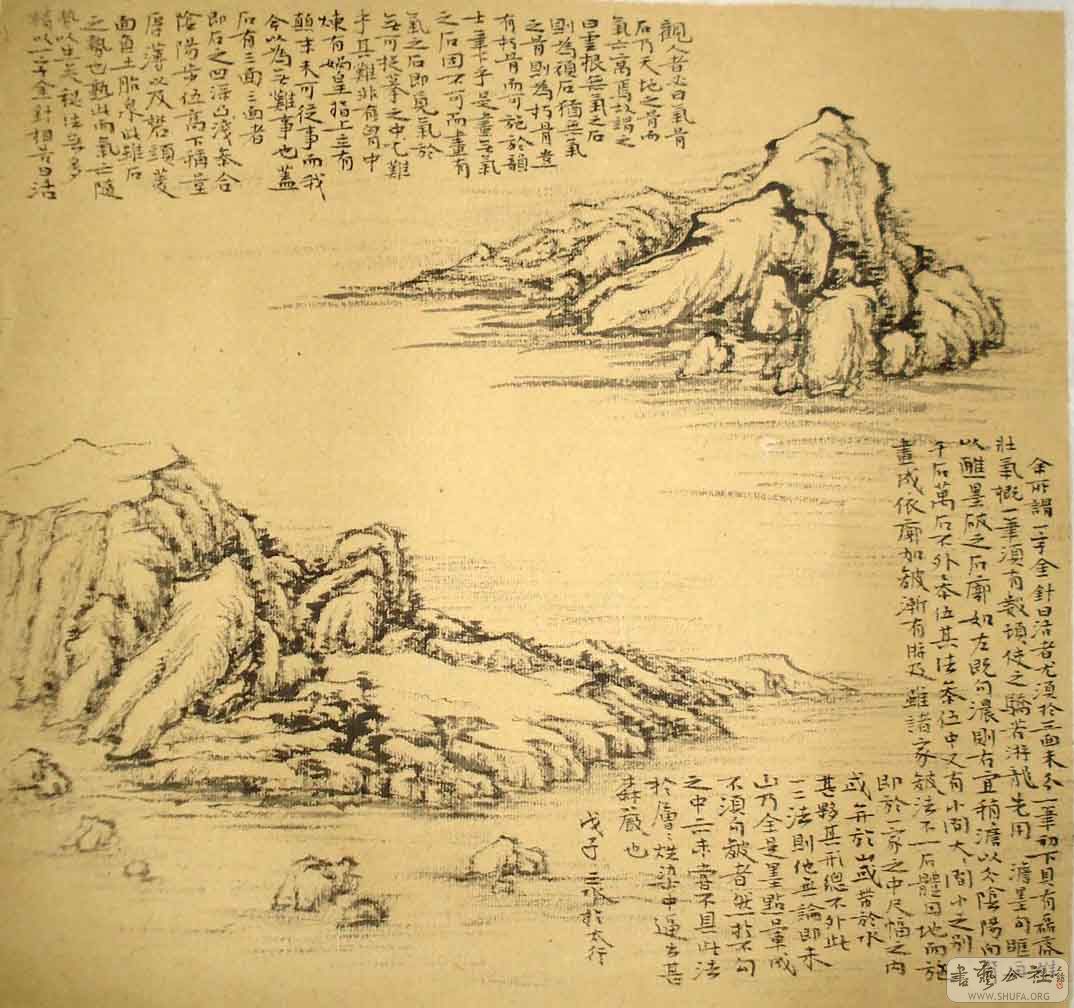 觀人者必曰氣骨
石乃天地之骨而
氣亦寓焉故謂之
曰雲根無氣之石
則為頑石猶無氣
之骨則為朽骨豈
有朽骨而可施於韻
士筆下乎是畫無氣
之石固不可而畫有
氣之石即覓氣於
無可捉摹之中尤難
乎其難非有胸中
煉有媧皇指上立有
顛末未可從事而我
今以為無難事也蓋
石有三面三面者
即石之凹深凸淺參合
陰陽步伍高下稱量
厚薄以及礬頭菱
面負土胎泉此雖石
之勢也熟此而氣亦隨
勢以生矣秘法無多
請以一字金針相告曰活
余所謂一字金針曰活者尤須於三面未分一筆初下具有磊落雄
壯氣概一筆須有數頓使之驕若游龍先用淡墨勾匡再
以醮墨破之石廓如左既勾濃則右宜稍澹以分陰陽向
千石萬石不外參伍其法參伍中又有小間大大間小之別
畫成依廓加皴漸有階及雖諸家皴法不一石體因地而施
即於一家之中尺幅之内
或弁於山或帶於水
甚夥其形總不外此
一二法則他無論即米
山乃全是墨點暈成
不須勾皴者然於不勾
之中亦未嘗不具此法
於層々烘染中運出甚
森嚴也
戊子三水於太行
書藝公社
WWW.SHUFA.ORG